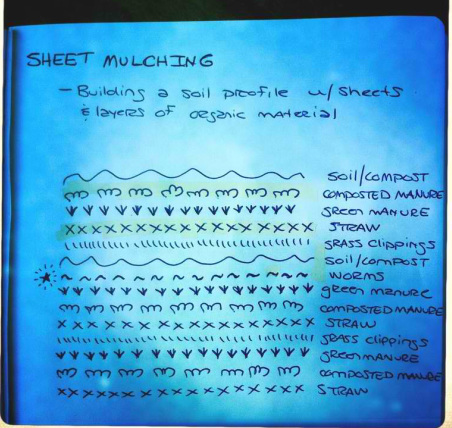 SHEET MULCHING
- Building a soil profile w/ sheets
& layers of organic material
soil/compost
composted manure
green manure
STRAW
grass clippings
soil/compost
worms
green manure
composted manure
STRAW
grass clippings
green manure
composted manure
STRAW